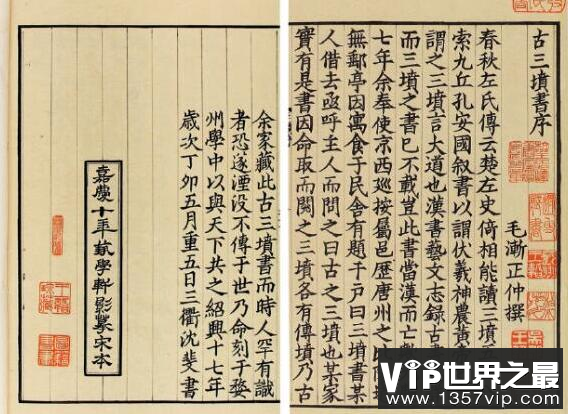 古三墳書序
毛漸正仲撰
春秋左氏傳云楚左史倚相能讀三墳
索九丘孔安國叙書以謂伏羲神農黃
謂之三墳言大道也漢書藝文志錄古書
而三墳之書已不載豈此書當漢而亡
七年余奉使京西廵按屬邑歷唐州之
無郵亭因寓食于民舍有題于户曰三墳書某
人借去亟呼主人而問之曰古之三墳也某家
實有是書因命取而閱之三墳各有傳墳乃古
余家藏此古三墳書而時人罕有識
者恐遂湮没不傳于世乃命刻于婺
州學中以與天下共之紹興十七年
歲次丁卯五月重五日三衢沈斐書
嘉慶十年蓺學軒影摹宋本
VIP世界之最
www.1357vip.com